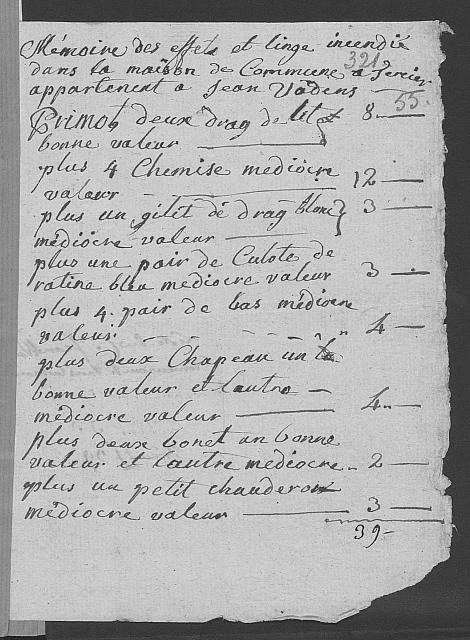 Mémoire des effets et linge incendié
321
dans la maison de Commune a
appartenent a Jean Vadens
55.
Primo deux drag de lit 8 —
bonne valeur
plus 4 Chemise mediocre
valeur 12 —
plus un gilet de drag blanc 3 —
médiocre valeur
plus une pair de Culote de
ratine bleu médiocre valeur 3 —
plus 4 pair de bas médiocre
valeur 4 —
plus deux Chapeau un
bonne valeur et lautre —
médiocre valeur — 4 —
plus deux bonet un bonne
valeur et lautre médiocre 2 —
plus un petit chauderon
médiocre valeur — 3 —
39 -